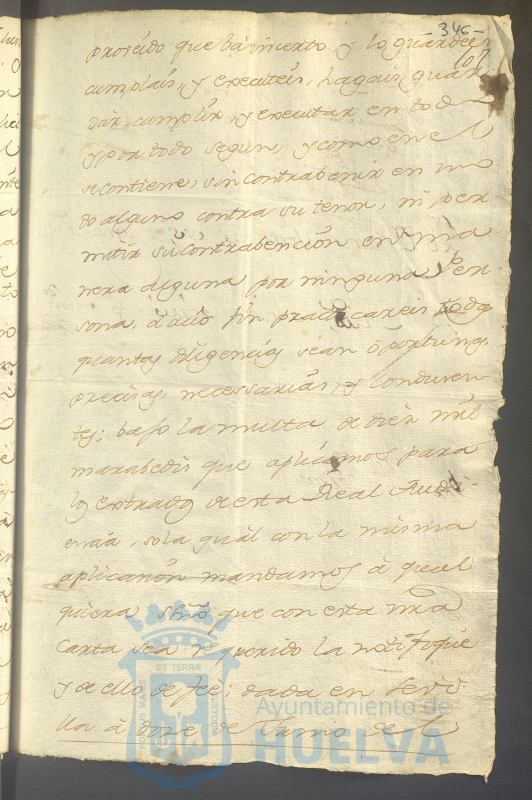 - 346 -
107
proseido que ba incerto, y lo guardeis
cumplais, y executeis, hagais, guar
dar, cumplir, y executar en todo
y por todo segun, y como en el
se contiene, sin contrabenir en mo
do alguno contra su tenor, ni per
mitir su contrabención en ma
nera alguna por ninguna Per-
sona, a cuio fin practicareis todas
quantas diligencias sean oportunas,
precisas, necessarias, y conducen
tes; bajo la multa de diez mil
marabedis que aplicamos para
los extrados de esta Real Audi
encia, so la qual con la misma
aplicación mandamos à qual
quiera Srño que con esta nra
Carta sea requerido la notifique
y de ello de feè; dada en Sevi
lla à doze de Junio de
ET TERRÆ
Ayuntamiento de
HUELVA